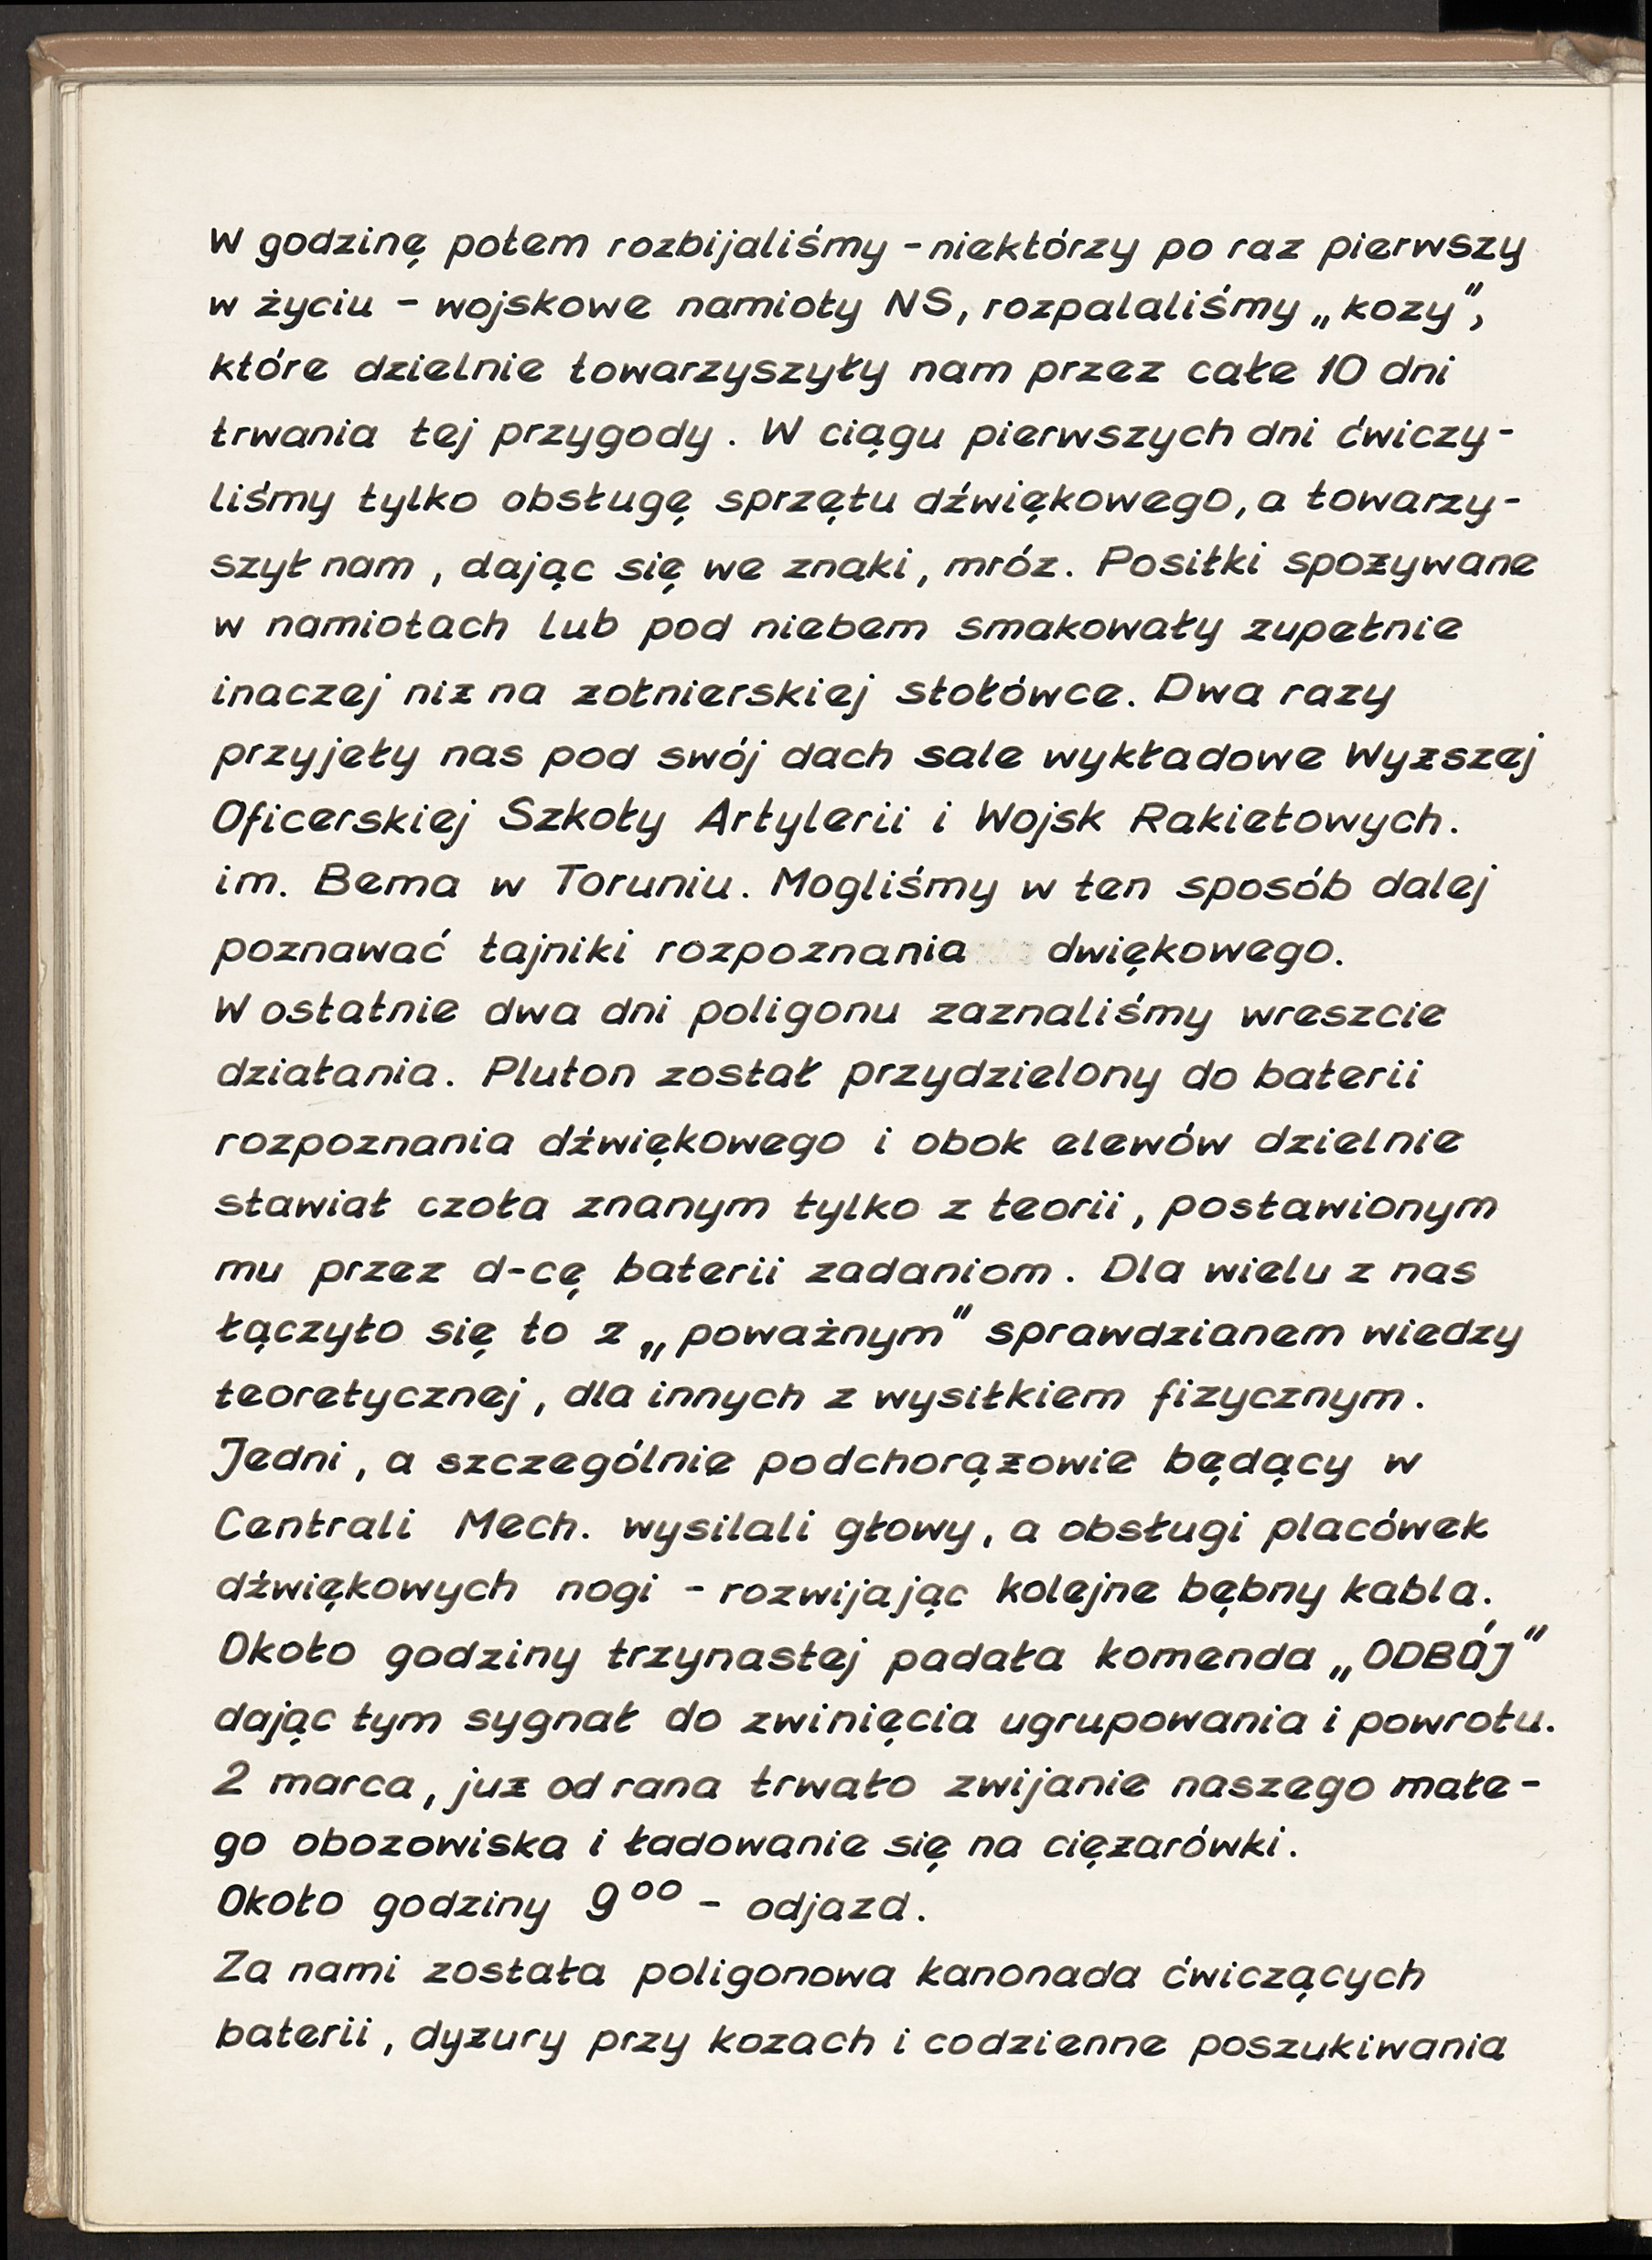 W godzinę potem rozbijaliśmy - niektórzy po raz pierwszy
w życiu - wojskowe namioty NS, rozpalaliśmy „kozy”,
które dzielnie towarzyszyły nam przez całe 10 dni
trwania tej przygody. W ciągu pierwszych dni ćwiczy-
liśmy tylko obsługę sprzętu dźwiękowego, a towarzy-
szył nam, dając się we znaki, mróz. Posiłki spożywane
w namiotach lub pod niebem smakowały zupełnie
inaczej niż na żołnierskiej stołówce. Dwa razy
przyjeły nas pod swój dach sale wykładowe Wyższej
Oficerskiej Szkoły Artylerii i Wojsk Rakietowych.
im. Bema w Toruniu. Mogliśmy w ten sposób dalej
poznawać tajniki rozpoznania dwiękowego.
W ostatnie dwa dni poligonu zaznaliśmy wreszcie
działania. Pluton został przydzielony do baterii
rozpoznania dźwiękowego i obok elewów dzielnie
stawiał czoła znanym tylko z teorii, postawionym
mu przez d-cę baterii zadaniom. Dla wielu z nas
łączyło się to z „poważnym” sprawdzianem wiedzy
teoretycznej, dla innych z wysiłkiem fizycznym.
Jedni, a szczególnie podchorążowie będący w
Centrali Mech. wysilali głowy, a obsługi placówek
dźwiękowych nogi - rozwijając kolejne bębny kabla.
Około godziny trzynastej padała komenda „ODBÓJ”
dając tym sygnał do zwinięcia ugrupowania i powrotu.
2 marca, już od rana trwało zwijanie naszego małe-
go obozowiska i ładowanie się na ciężarówki.
Około godziny 9⁰⁰ - odjazd.
Za nami została poligonowa kanonada ćwiczących
baterii, dyżury przy kozach i codzienne poszukiwania